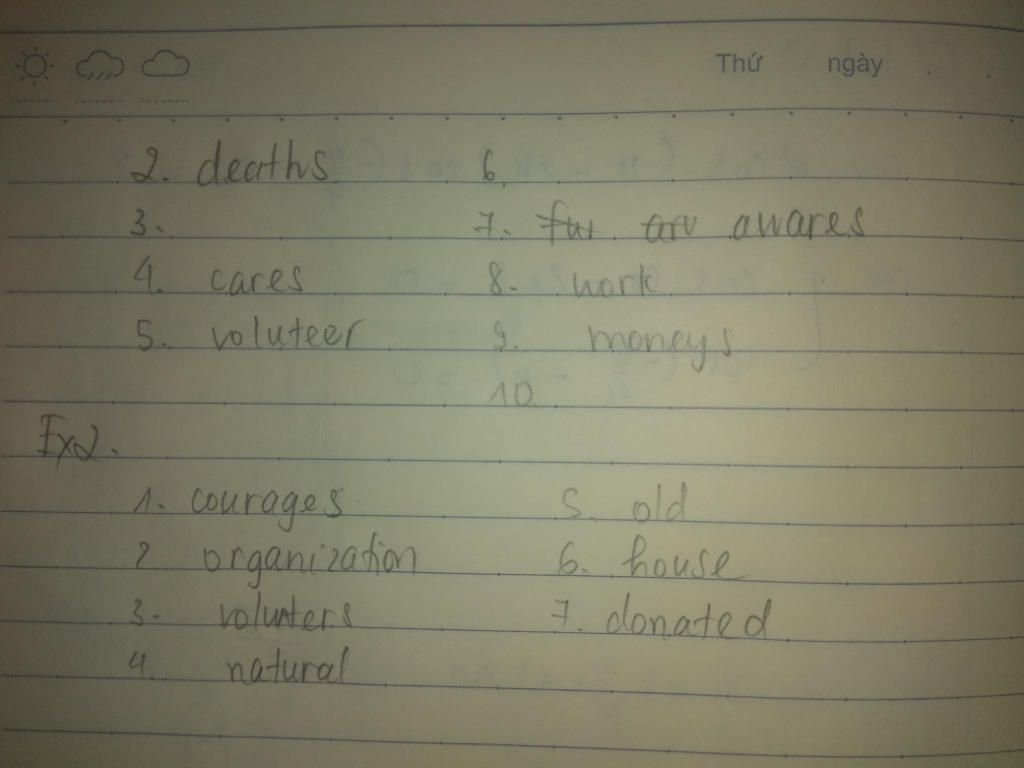 Thứ ngày
2. deaths 6.
3. 7. fur arv awares
4. cares 8. work
5. voluteer 9. moneys
10.
Ex2.
1. courages 5. old
2. organization 6. house
3. volunters 7. donated
4. natural